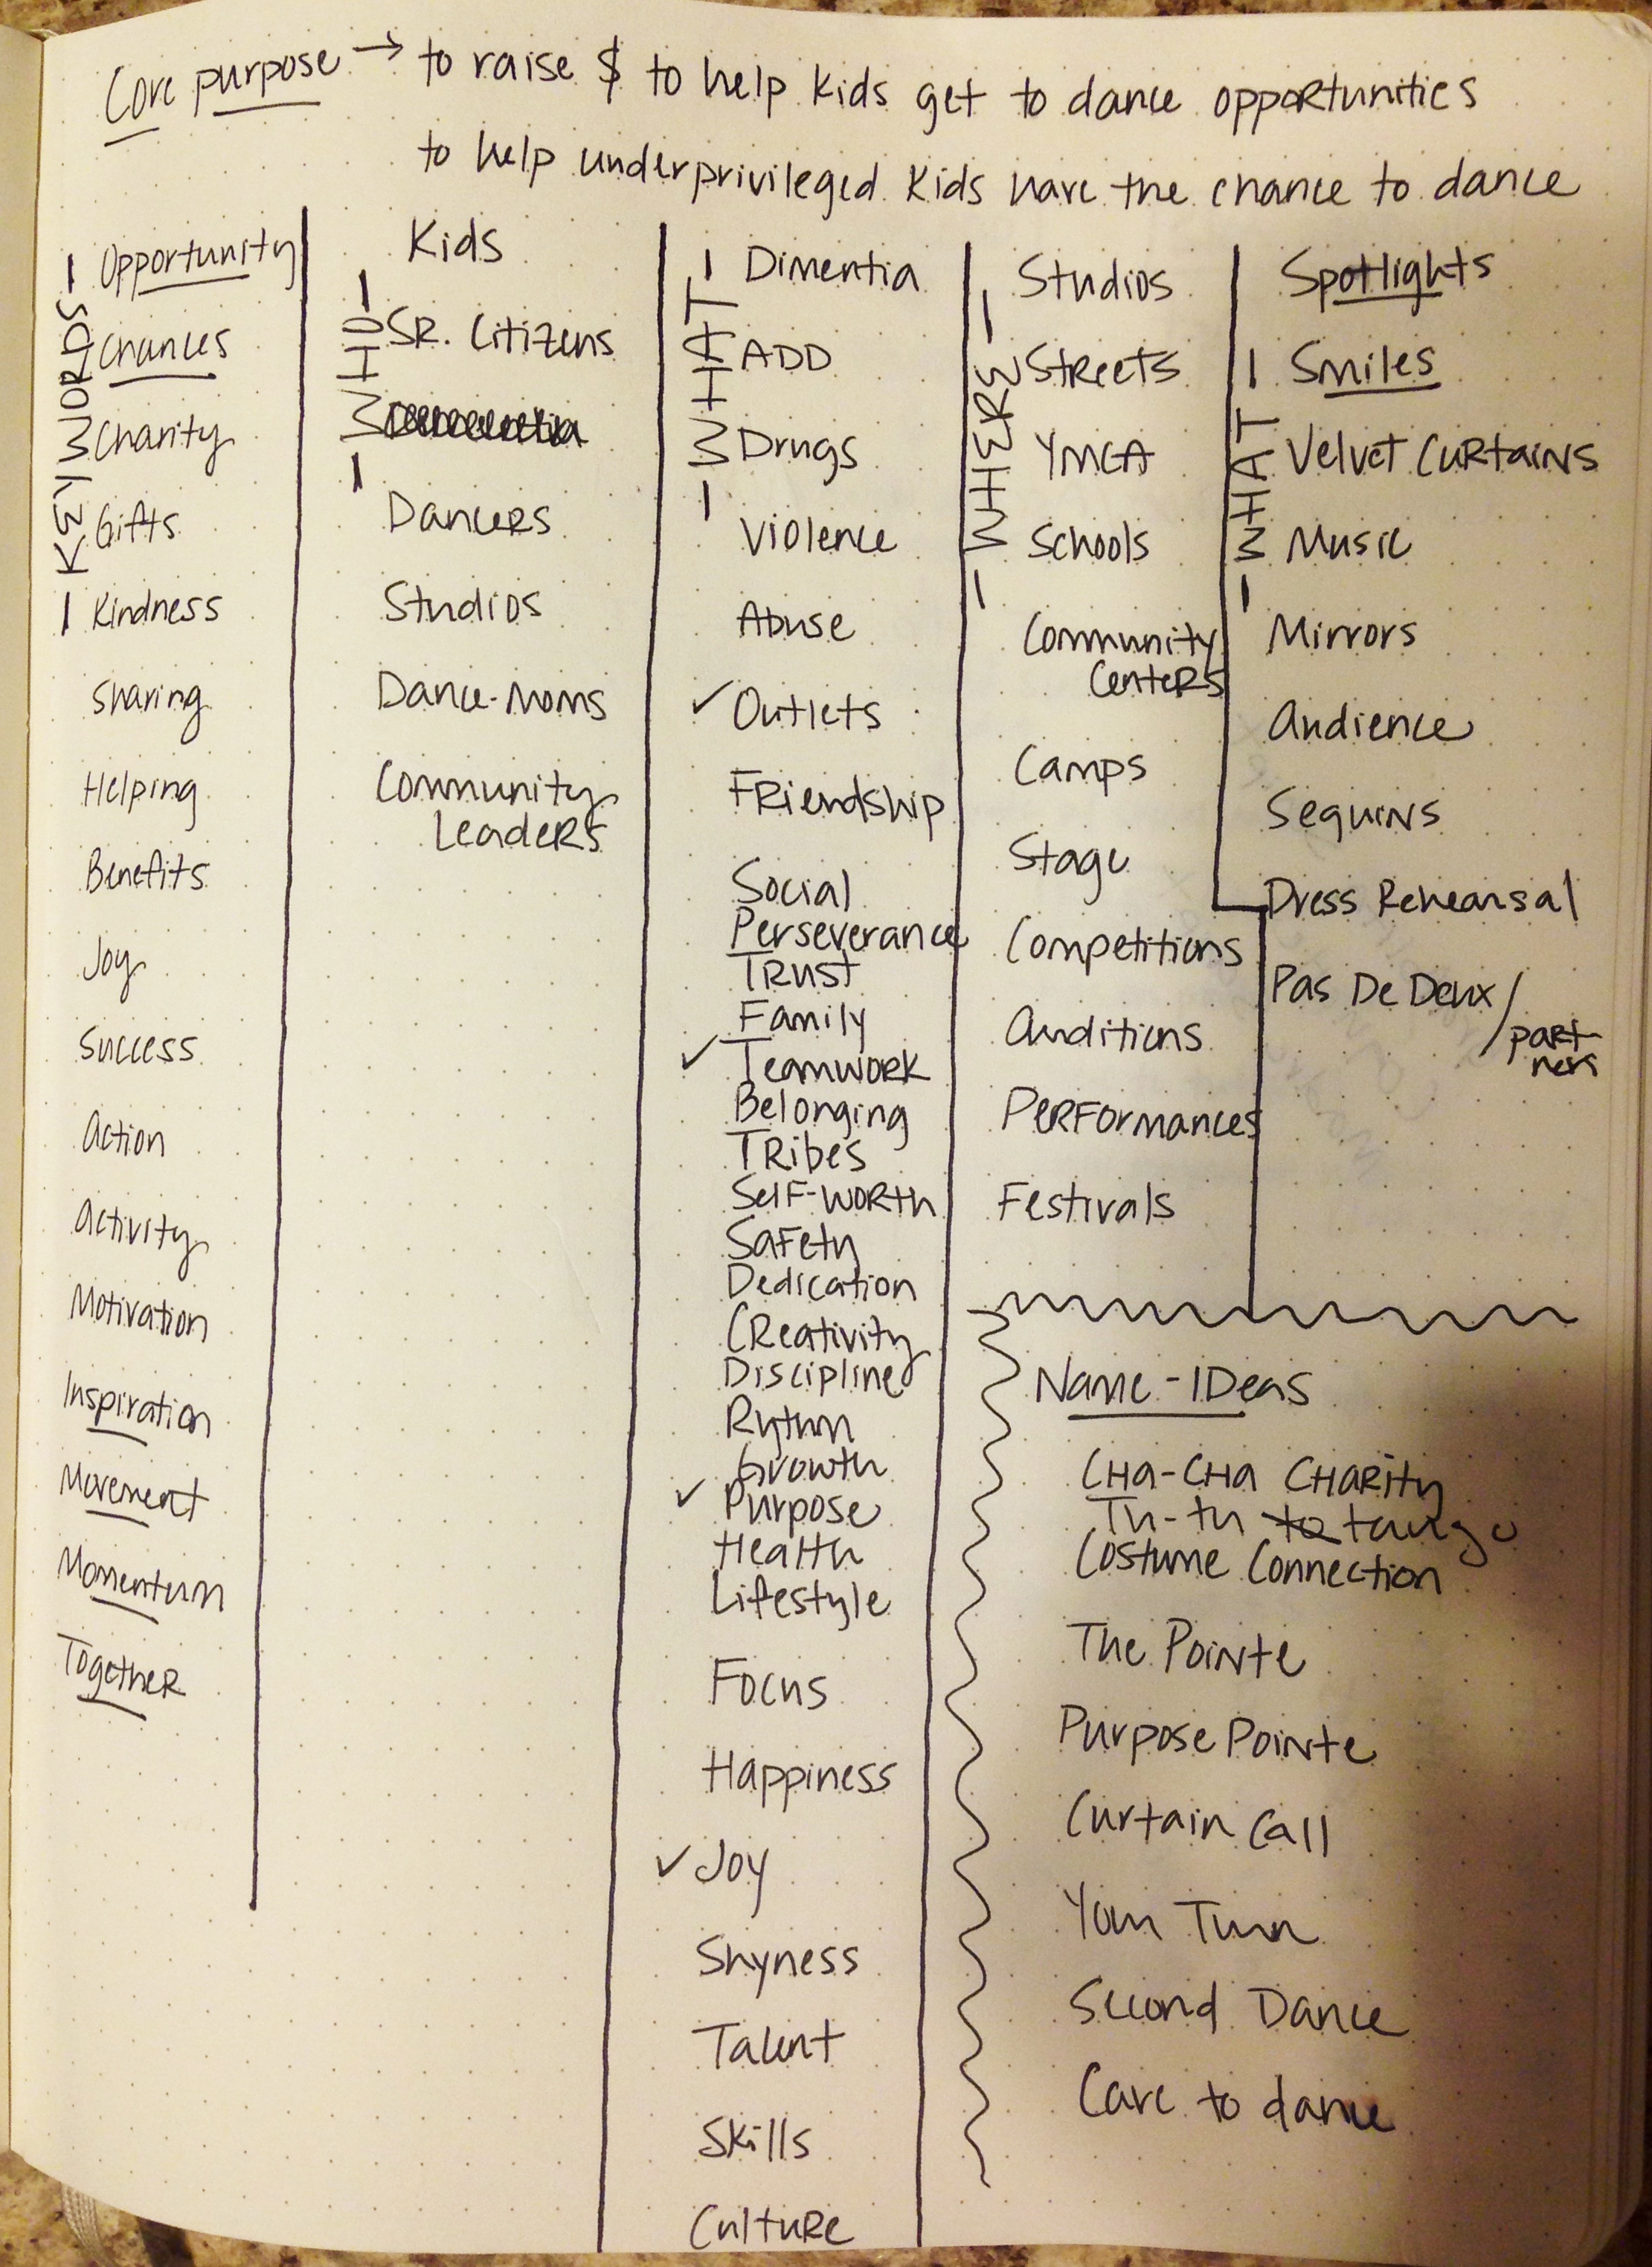 Core purpose → to raise $ to help kids get to dance opportunities
to help underprivileged kids have the chance to dance
- KEY WORDS -
Opportunity
Chances
Charity
Gifts
Kindness
Sharing
Helping
Benefits
Joy
Success
Action
Activity
Motivation
Inspiration
Movement
Momentum
Together
- WHO -
Kids
SR. Citizens
Dancers
Studios
Dance-Moms
Community
Leaders
- WHAT -
Dimentia
ADD
Drugs
Violence
Abuse
✓ Outlets
Friendship
Social
Perseverance
Trust
Family
✓ Teamwork
Belonging
Tribes
Self-worth
Safety
Dedication
Creativity
Discipline
Rythm
Growth
✓ Purpose
Health
Lifestyle
Focus
Happiness
✓ Joy
Shyness
Talent
Skills
Culture
- WHERE -
Studios
Streets
YMCA
Schools
Community
Centers
Camps
Stage
Competitions
Auditions
Performances
Festivals
- WHAT -
Spotlights
Smiles
Velvet Curtains
Music
Mirrors
Audience
Sequins
Dress Rehearsal
Pas De Deux /
part
ners
Name - IDeas
CHa-CHa CHARity
Tu-tu to tango
Costume Connection
The Pointe
Purpose Pointe
Curtain Call
Your Turn
Second Dance
Care to dance